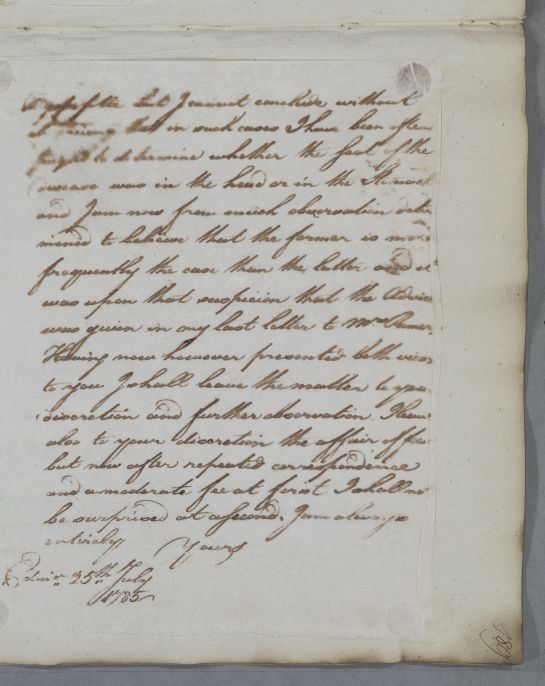 but I cannot conclude without
that in such cases I have been often
to determine whether the seat of the
disease was in the head or in the Stomach
and I am now from much observation deter
mined to believe that the former is more
frequently the case than the latter and it
was upon that suspicion that the Advice
was given in my last letter to Mrs
Having now however presented both views
to you I shall leave the matter to your
discretion and further observation. I leave
also to your discretion the affair of fee
but now after repeated correspondence
and a moderate fee at first I shall not
be surprised at a second, I am always
entirely
Yours
Edinr. 25th July
1785